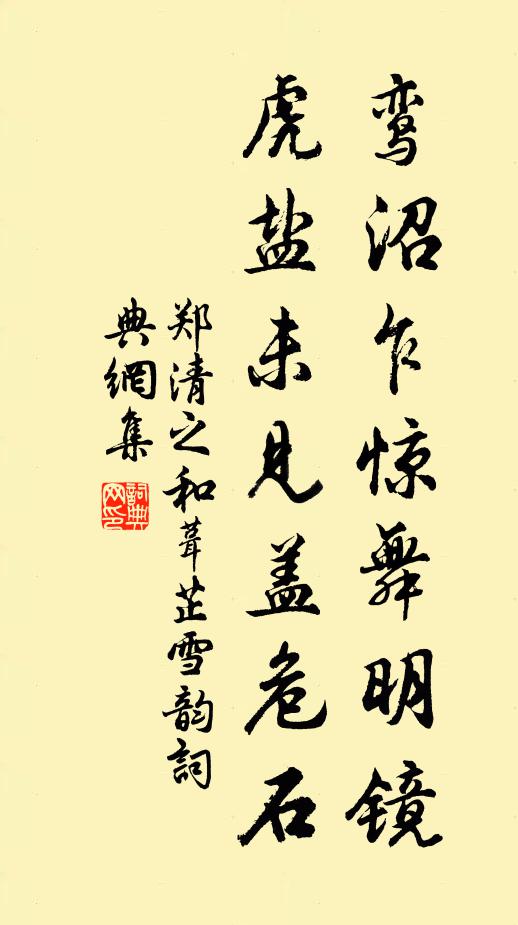 鸾沼乍惊舞明镜
虎盐未见盖危石
郑清之和葺芷雪韵詞
典網集
詞典网印